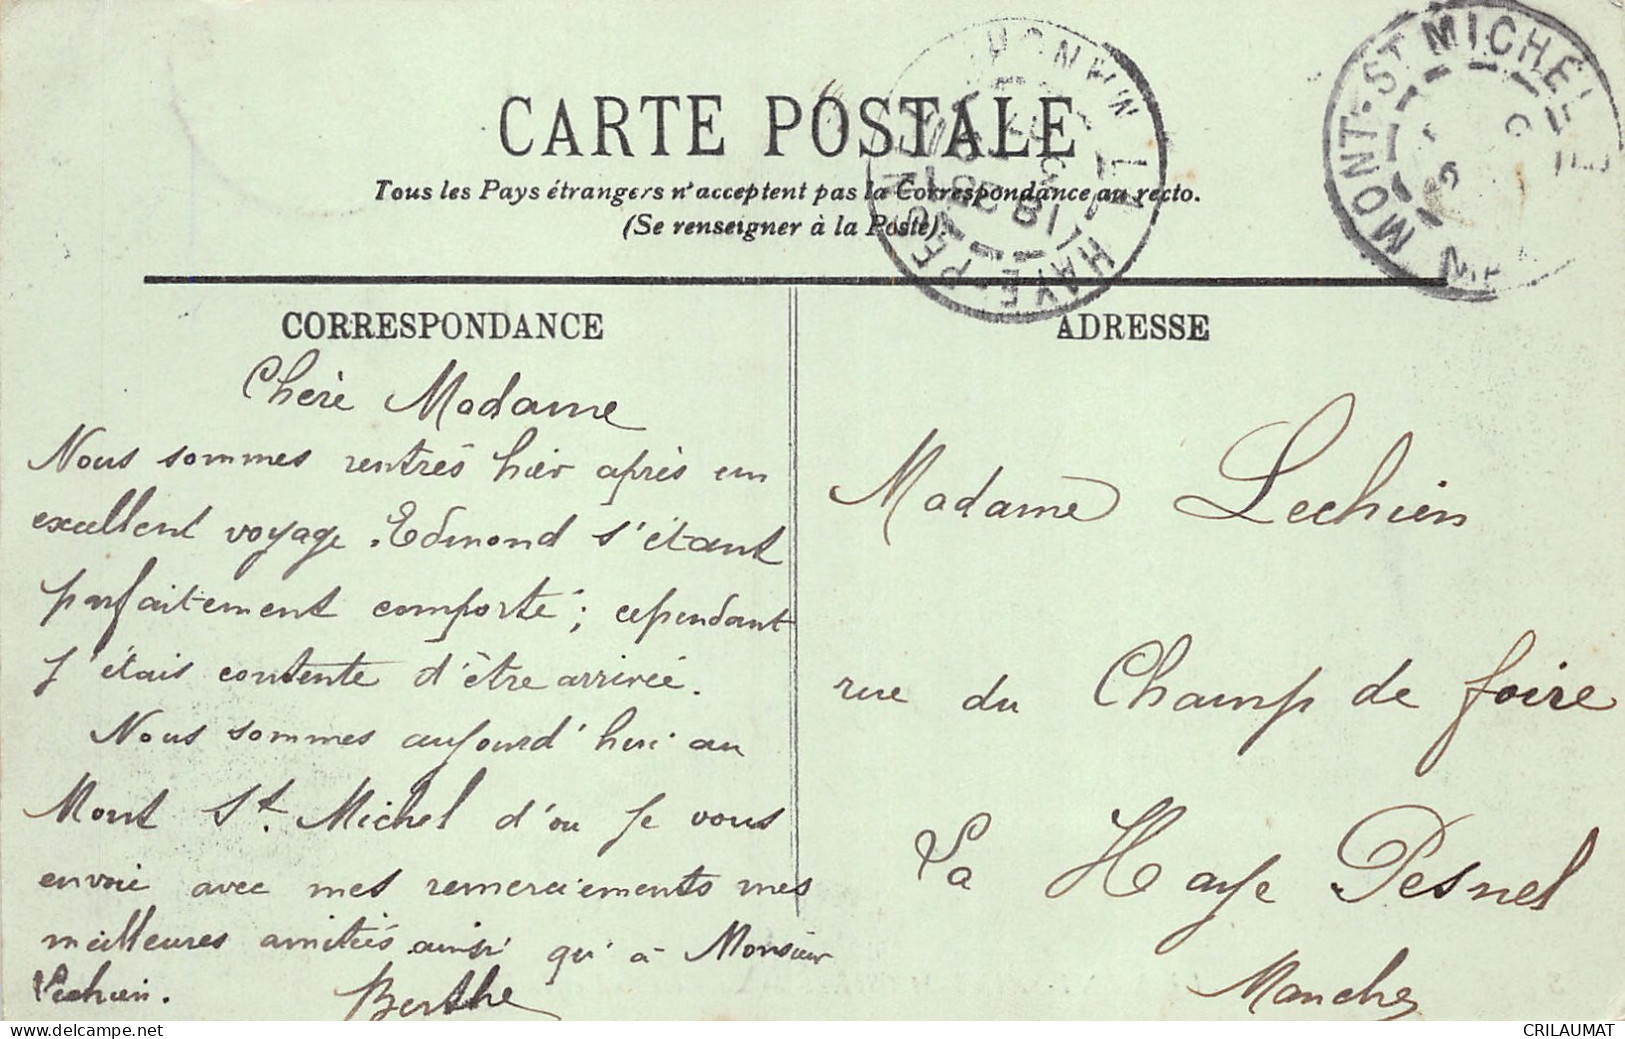 CARTE POSTALE
Tous les Pays étrangers n'acceptent pas la Correspondance au recto.
(Se renseigner à la Poste).
MONT-ST MICHEL
LA HAYE-PESNEL
CORRESPONDANCE
ADRESSE
Chère Madame
Nous sommes rentrés hier après un
excellent voyage. Edmond s'étant
parfaitement comporté; cependant
j'étais contente d'être arrivée.
Nous sommes aujourd'hui au
Mont St. Michel d'ou je vous
envoie avec mes remerciements mes
meilleures amitiés ainsi qu'à Monsieur
Lechien.
Berthe
Madame Lechien
rue du Champ de foire
La Haye Pesnel
Manche
CRILAUMAT